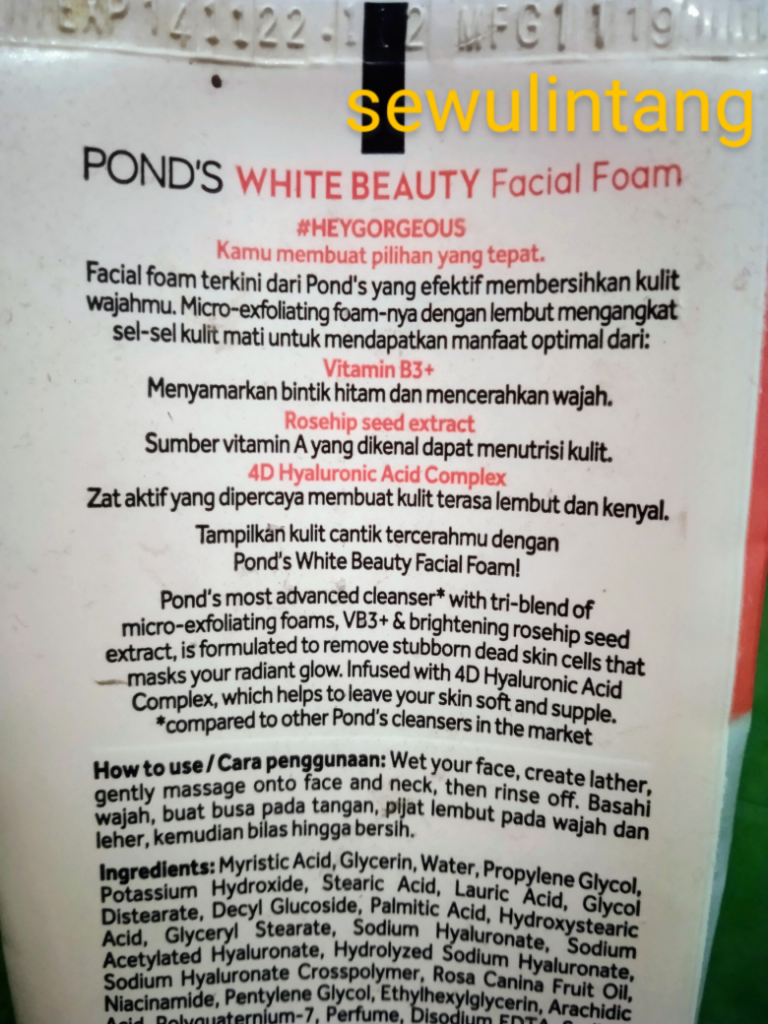 EXP 141122 MFG 11 19
sewulintang
POND'S WHITE BEAUTY Facial Foam
#HEYGORGEOUS
Kamu membuat pilihan yang tepat.
Facial foam terkini dari Pond's yang efektif membersihkan kulit
wajahmu. Micro-exfoliating foam-nya dengan lembut mengangkat
sel-sel kulit mati untuk mendapatkan manfaat optimal dari:
Vitamin B3+
Menyamarkan bintik hitam dan mencerahkan wajah.
Rosehip seed extract
Sumber vitamin A yang dikenal dapat menutrisi kulit.
4D Hyaluronic Acid Complex
Zat aktif yang dipercaya membuat kulit terasa lembut dan kenyal.
Tampilkan kulit cantik tercerahmu dengan
Pond's White Beauty Facial Foam!
Pond's most advanced cleanser* with tri-blend of
micro-exfoliating foams, VB3+ & brightening rosehip seed
extract, is formulated to remove stubborn dead skin cells that
masks your radiant glow. Infused with 4D Hyaluronic Acid
Complex, which helps to leave your skin soft and supple.
*compared to other Pond's cleansers in the market
How to use / Cara penggunaan: Wet your face, create lather,
gently massage onto face and neck, then rinse off. Basahi
wajah, buat busa pada tangan, pijat lembut pada wajah dan
leher, kemudian bilas hingga bersih.
Ingredients: Myristic Acid, Glycerin, Water, Propylene Glycol,
Potassium Hydroxide, Stearic Acid, Lauric Acid, Glycol
Distearate, Decyl Glucoside, Palmitic Acid, Hydroxystearic
Acid, Glyceryl Stearate, Sodium Hyaluronate, Sodium
Acetylated Hyaluronate, Hydrolyzed Sodium Hyaluronate,
Sodium Hyaluronate Crosspolymer, Rosa Canina Fruit Oil,
Niacinamide, Pentylene Glycol, Ethylhexylglycerin, Arachidic
Acid, Polyquaternium-7, Perfume, Disodium EDTA